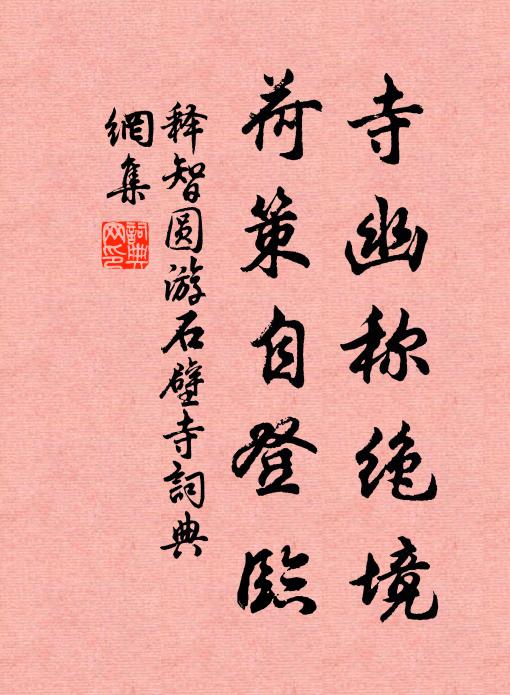 寺幽称绝境
荷策自登臨
释智圆游石壁寺詞典
網集
詞典
网印